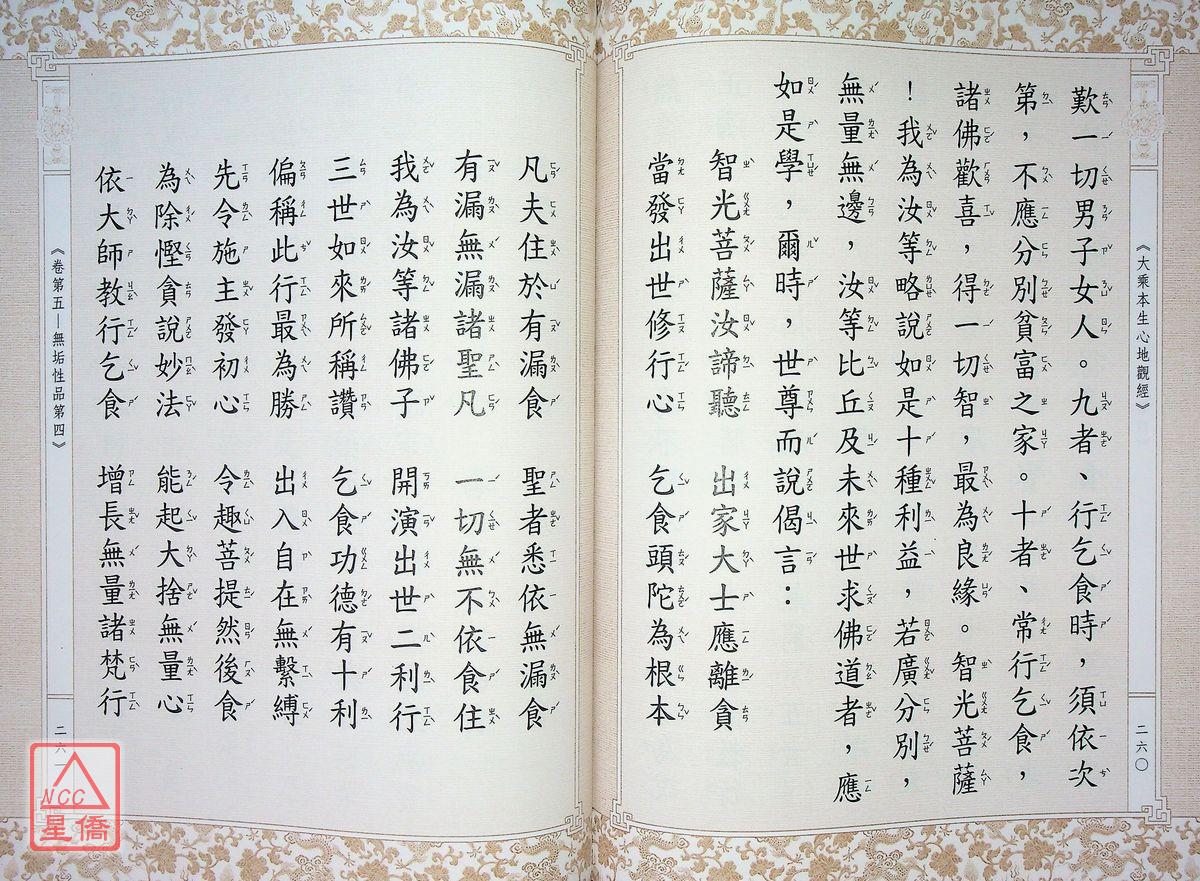 《大乘本生心地觀經》
二六〇
歎一切男子女人。九者、行乞食時，須依次
第，不應分別貧富之家。十者、常行乞食，
諸佛歡喜，得一切智，最為良緣。智光菩薩
！我為汝等略說如是十種利益，若廣分別，
無量無邊，汝等比丘及未來世求佛道者，應
如是學，爾時，世尊而說偈言：
智光菩薩汝諦聽　出家大士應離貪
當發出世修行心　乞食頭陀為根本
凡夫住於有漏食　聖者悉依無漏食
有漏無漏諸聖凡　一切無不依食住
我為汝等諸佛子　開演出世二利行
三世如來所稱讚　乞食功德有十利
偏稱此行最為勝　出入自在無繫縛
先令施主發初心　令趣菩提然後食
為除慳貪說妙法　能起大捨無量心
依大師教行乞食　增長無量諸梵行
《卷第五—無垢性品第四》
二六一
NCC
星僑